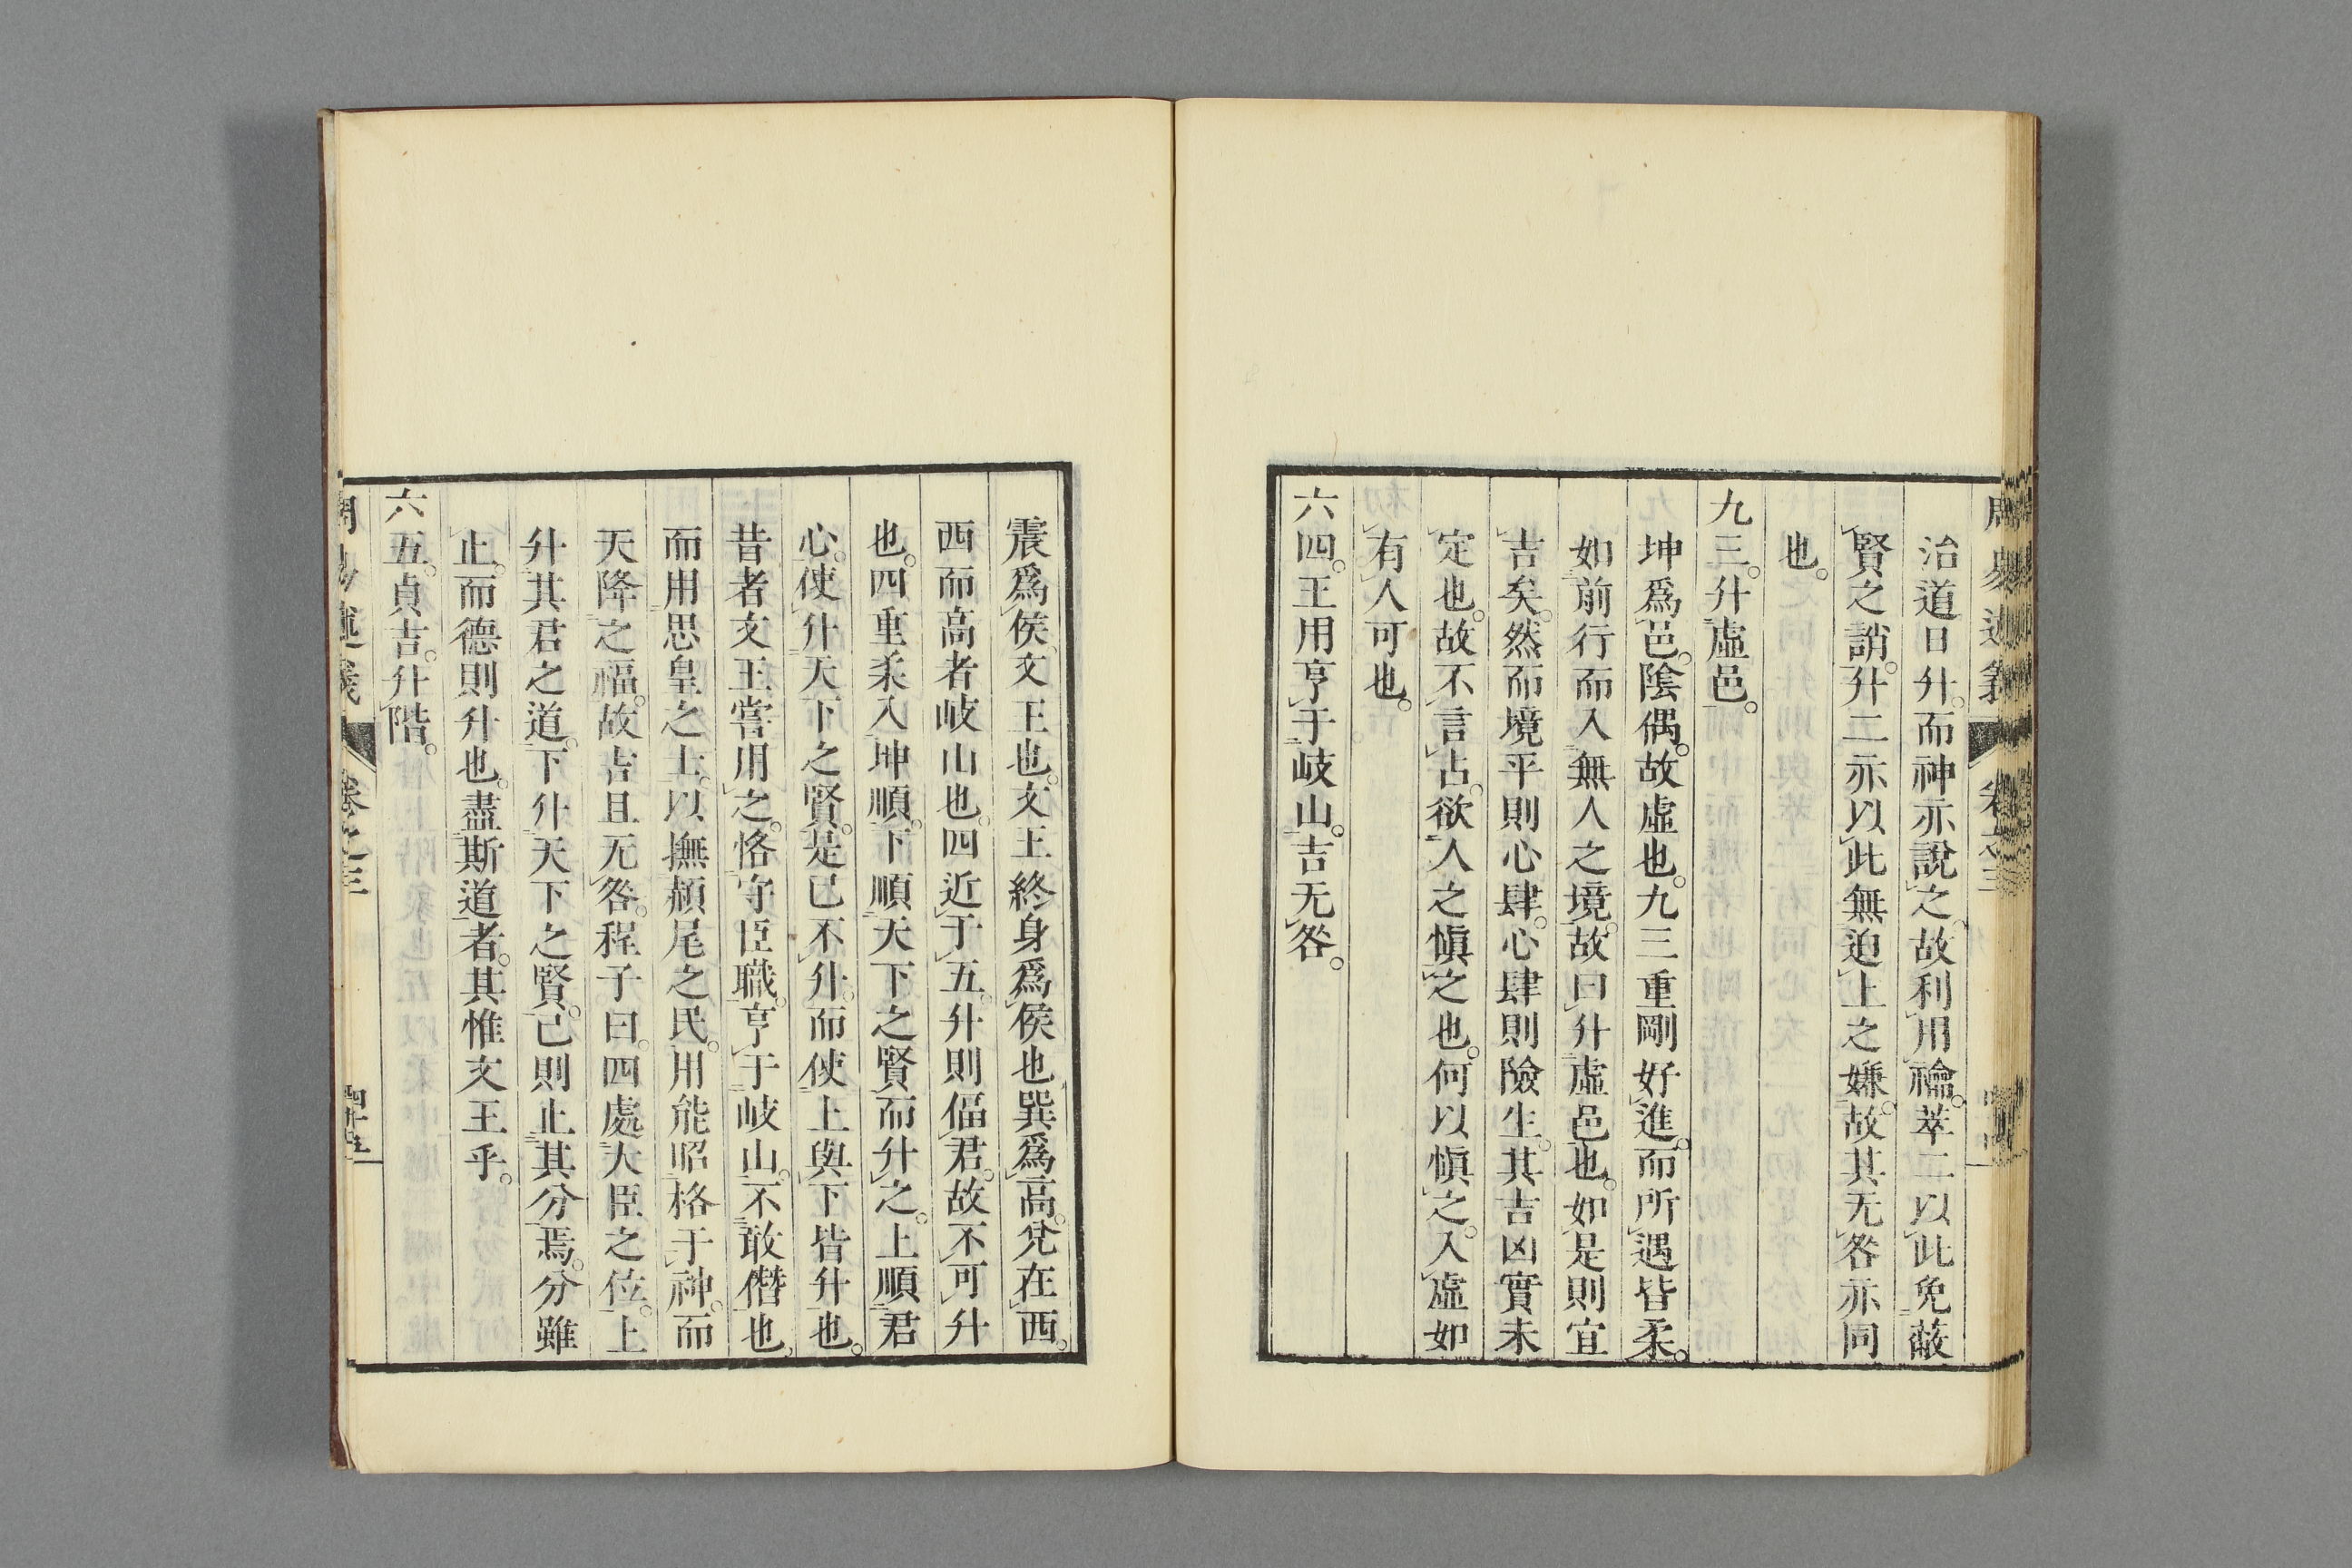 治道日升。而神亦說之。故利用禴。萃二以此免蔽
賢之誚。升二亦以此無迫上之嫌。故其无咎亦同
也。
九三。升虛邑。
坤爲邑。陰偶。故虛也。九三重剛好進。而所遇皆柔。
如前行而入無人之境。故曰升虛邑也。如是則宜
吉矣。然而境平則心肆。心肆則險生。其吉凶實未
定也。故不言占。欲人之愼之也。何以愼之。入虛如
有人可也。
六四。王用亨于岐山。吉无咎。
震爲侯。文王也。文王終身爲侯也。巽爲高。兌在西。
西而高者岐山也。四近于五。升則偪君。故不可升
也。四重柔入坤順。下順天下之賢而升之。上順君
心。使升天下之賢。是已不升。而使上與下皆升也。
昔者文王嘗用之。恪守臣職。亨于岐山。不敢僭也。
而用思皇之士。以撫頳尾之民。用能昭格于神。而
天降之福。故吉且无咎。程子曰。四處大臣之位。上
升其君之道。下升天下之賢。己則止其分焉。分雖
止。而德則升也。盡斯道者。其惟文王乎。
六五。貞吉。升階。
周易述義 卷之三 四十五